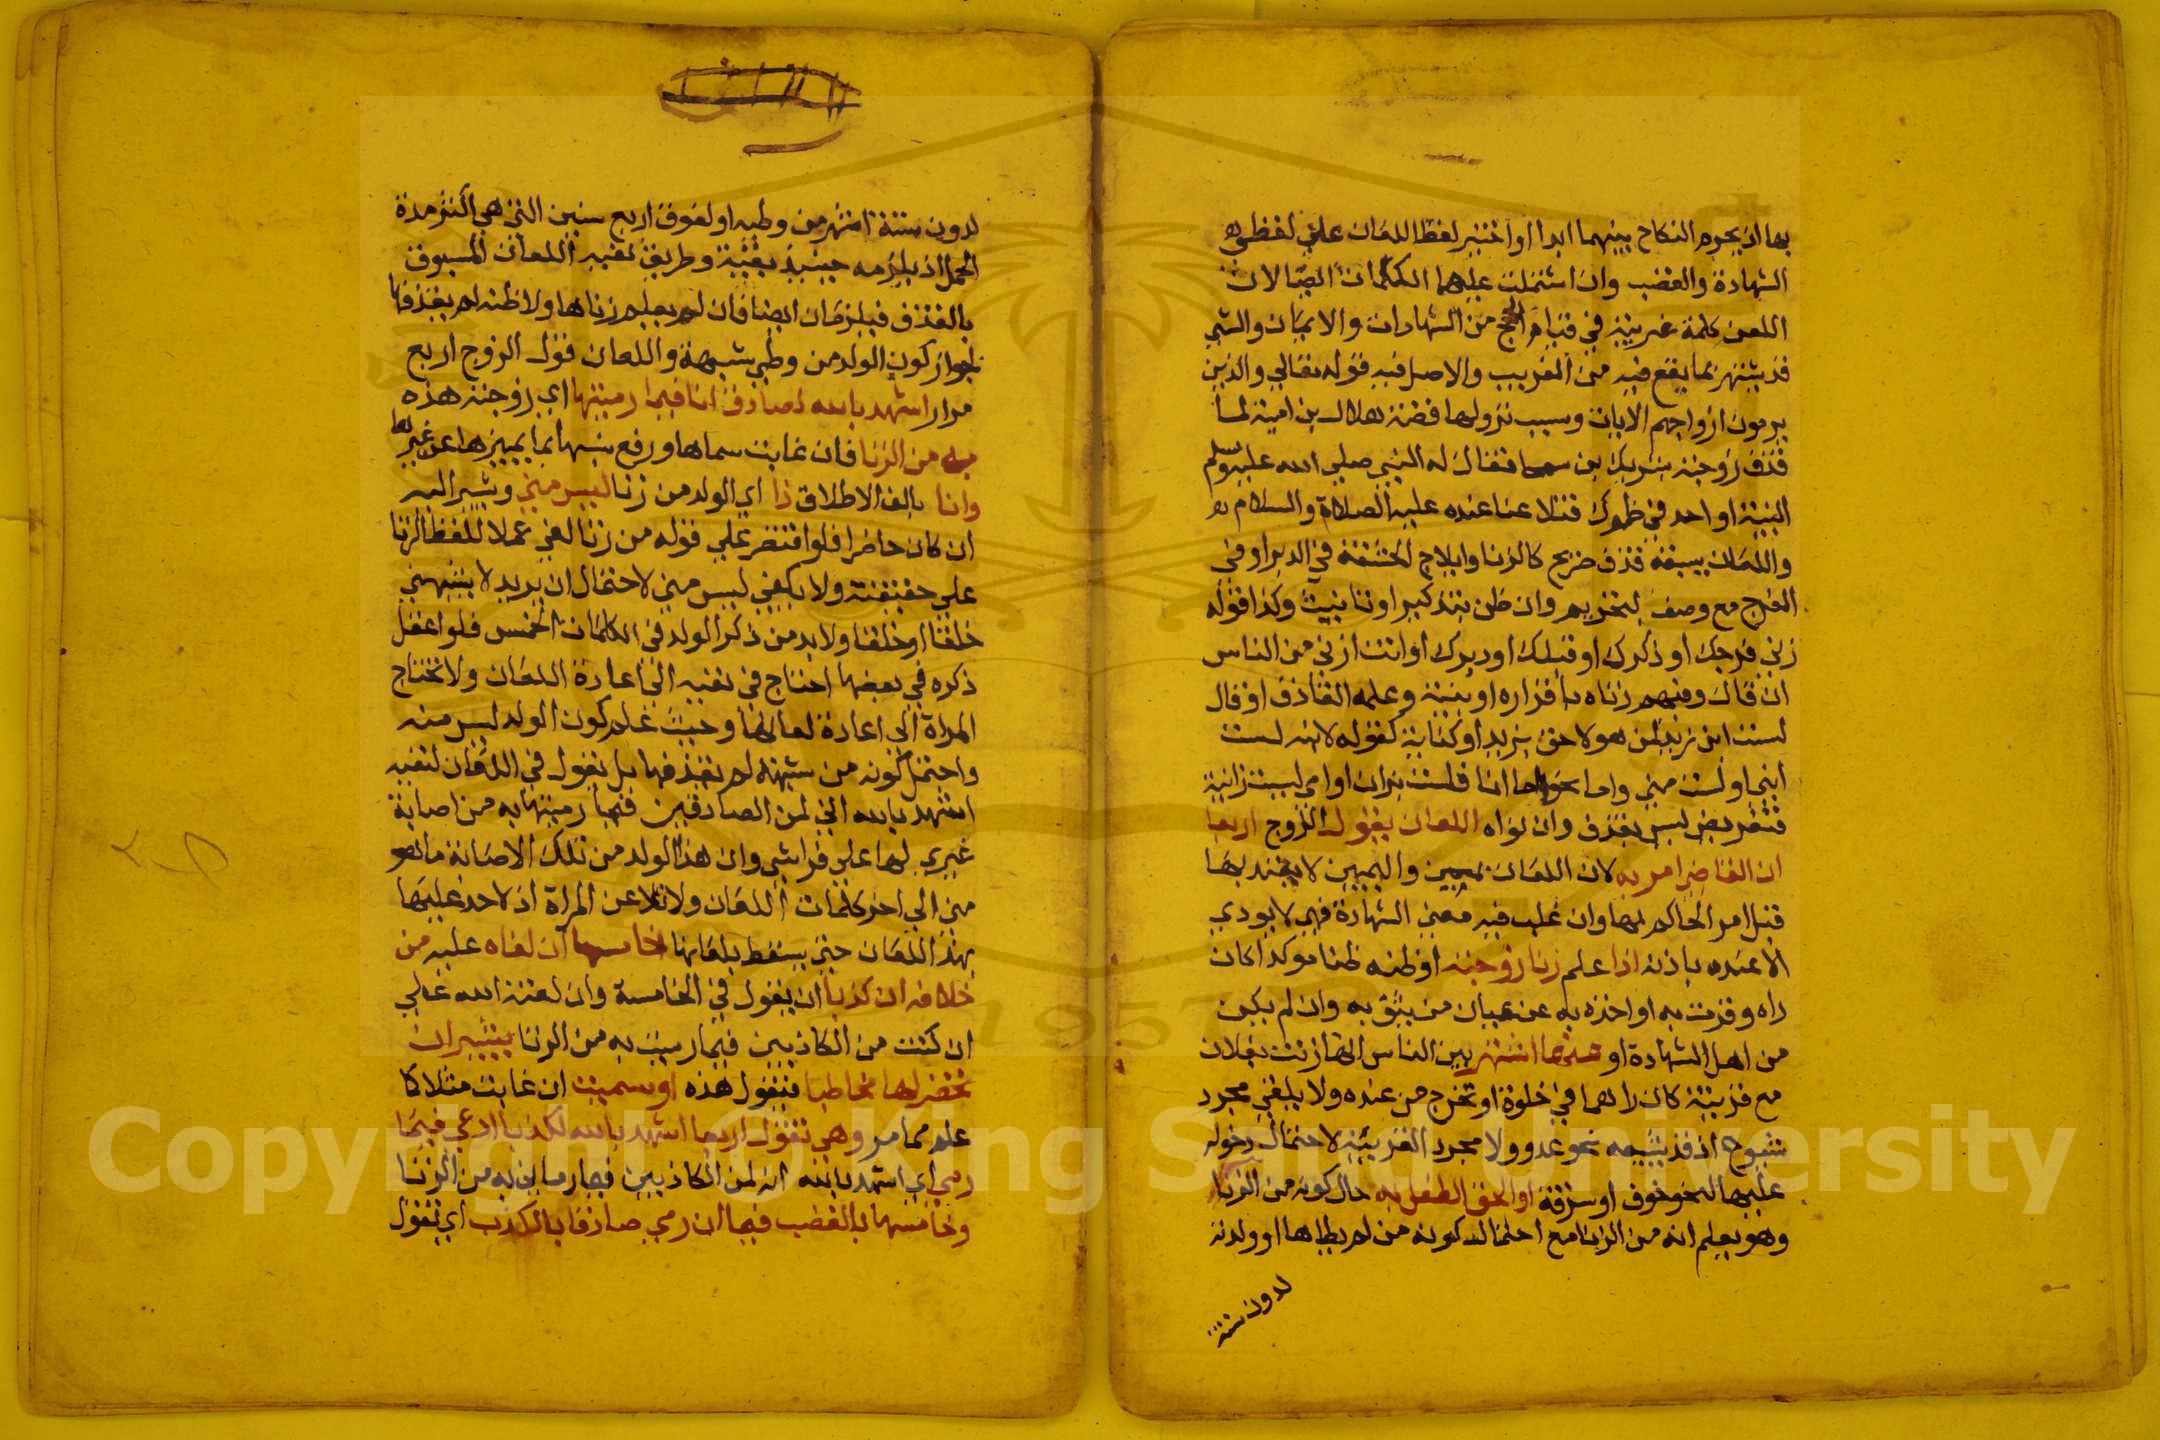 بها اذ يحرم النكاح بينهما ابدا او اختير لفظ اللعان علي لفظي
الشهادة والغضب وان اشتملت عليهما الكلمات ايضا لان
اللعن كلمة غريبة في قيام الحجج من الشهادات والايمان والشي
قد يشتهر بما يقع فيه من الغريب والاصل فيه قوله تعالي والذين
يرمون ازواجهم الايات وسبب نزولها قصة هلال بن امية لما
قذف زوجته بشريك بن سحما فقال له النبي صلي الله عليه وسلم
البينة او احد في ظهرك فتلاعنا عنده عليه الصلاة والسلام
واللعان يسبقه قذف صريح كالزنا وايلاج الحشفة في الدبر او في
الفرج مع وصف لتحريم وان ظن بتذكير او تانيث وكذا قوله
زني فرجك او ذكرك او قبلك او دبرك او انت ازني من الناس
ان قال وفيهم زناه باقراره او بينة وعلمه القاذف او قال
لست ابن زيد لمن هو لاحق بزيد او كناية كقوله لابنه لست
ابني او لست مني واما نحو اما انا فلست بزان او امي ليست زانية
فتعريض ليس بقذف وان نواه اللعان يقول الزوج اربعا
ان القاضي امر به لان اللعان يمين واليمين لا يعتد بها
قبل امر الحاكم بها وان غلب فيه معني الشهادة فهي لا يودي
الا عنده باذنه اذا علم زنا زوجته او ظنه ظنا موكدا كان
راه وقرنت به او اخذه به عن عيان من يثق به وان لم يكن
من اهل الشهادة او اشتهر بين الناس انها زنت بفلان
مع قرينة كان راهما في خلوة او تخرج من عنده ولا يكفي مجرد
شيوع اذ قد يشيعه نحو عدو ولا مجرد القرينة لاحتمال دخوله
عليها لنحو خوف او سرقة او الحق الطفل به حال كونه من الزنا
وهو يعلم انه من الزنا مع احتمال كونه من لم يطاها او ولدته
لدون ستة
لدون ستة اشهر من وطيه او لفوق اربع سنين التي هي اكثر مدة
الحمل اذ يلزمه حينيذ بقية وطريق نفيه اللعان المسبوق
بالقذف فيلزمان ايضا فان لم يعلم زناها ولا ظنه لم يقذفها
لجواز كون الولد من وطي شبهة واللعان قول الزوج اربع
مرار اشهد بالله لصادق انا فيما رميتها اي زوجته هذه
به من الزنا فان غابت سماها ورفع نسبها بما يميزها عن غيرها
وانا بالف الاطلاق ذا اي الولد من زنا ليس مني ويشير اليه
ان كان حاضرا فلو اقتصر علي قوله من زنا لغي حملا للفظ الزنا
علي حقيقته ولا يكفي ليس مني لاحتمال ان يريد لا يشبهني
خلقا او خلقا ولا بد من ذكر الولد في الكلمات الخمس فلو اغفل
ذكره في بعضها احتاج في نفيه الي اعادة اللعان ولا تحتاج
المراة الي اعادة لعانها وحيث علم كون الولد ليس منه
واحتمل كونه من شبهة لم يقذفها بل يقول في اللعان لنفيه
اشهد بالله اني لمن الصادقين فيما رميتها به من اصابة
غيري لها علي فراشي وان هذا الولد من تلك الاصابة ما هو
مني الي اخر كلمات اللعان ولا تلاعن المراة اذ لا حد عليها
بهذا اللعان حتي يسقط بلعانها خامسها ان لعناه عليه من
خلاقه ان كذبا ان يقول في الخامسة وان لعنة الله علي
ان كنت من الكاذبين فيما رميت به من الزنا يشير ان
تحضر لها مخاطبا فيقول هذه او سميت ان غابت مثلا كا
علم مما مر وهي تقول اربعا اشهد بالله لكذبا ادعي فيما
رمي اي اشهد بالله انه لمن الكاذبين فيما رماني به من الزنا
وخامسها بالغضب فيما ان رمي صادقا بالكذب اي تقول
Copyright © King Saud University
1957